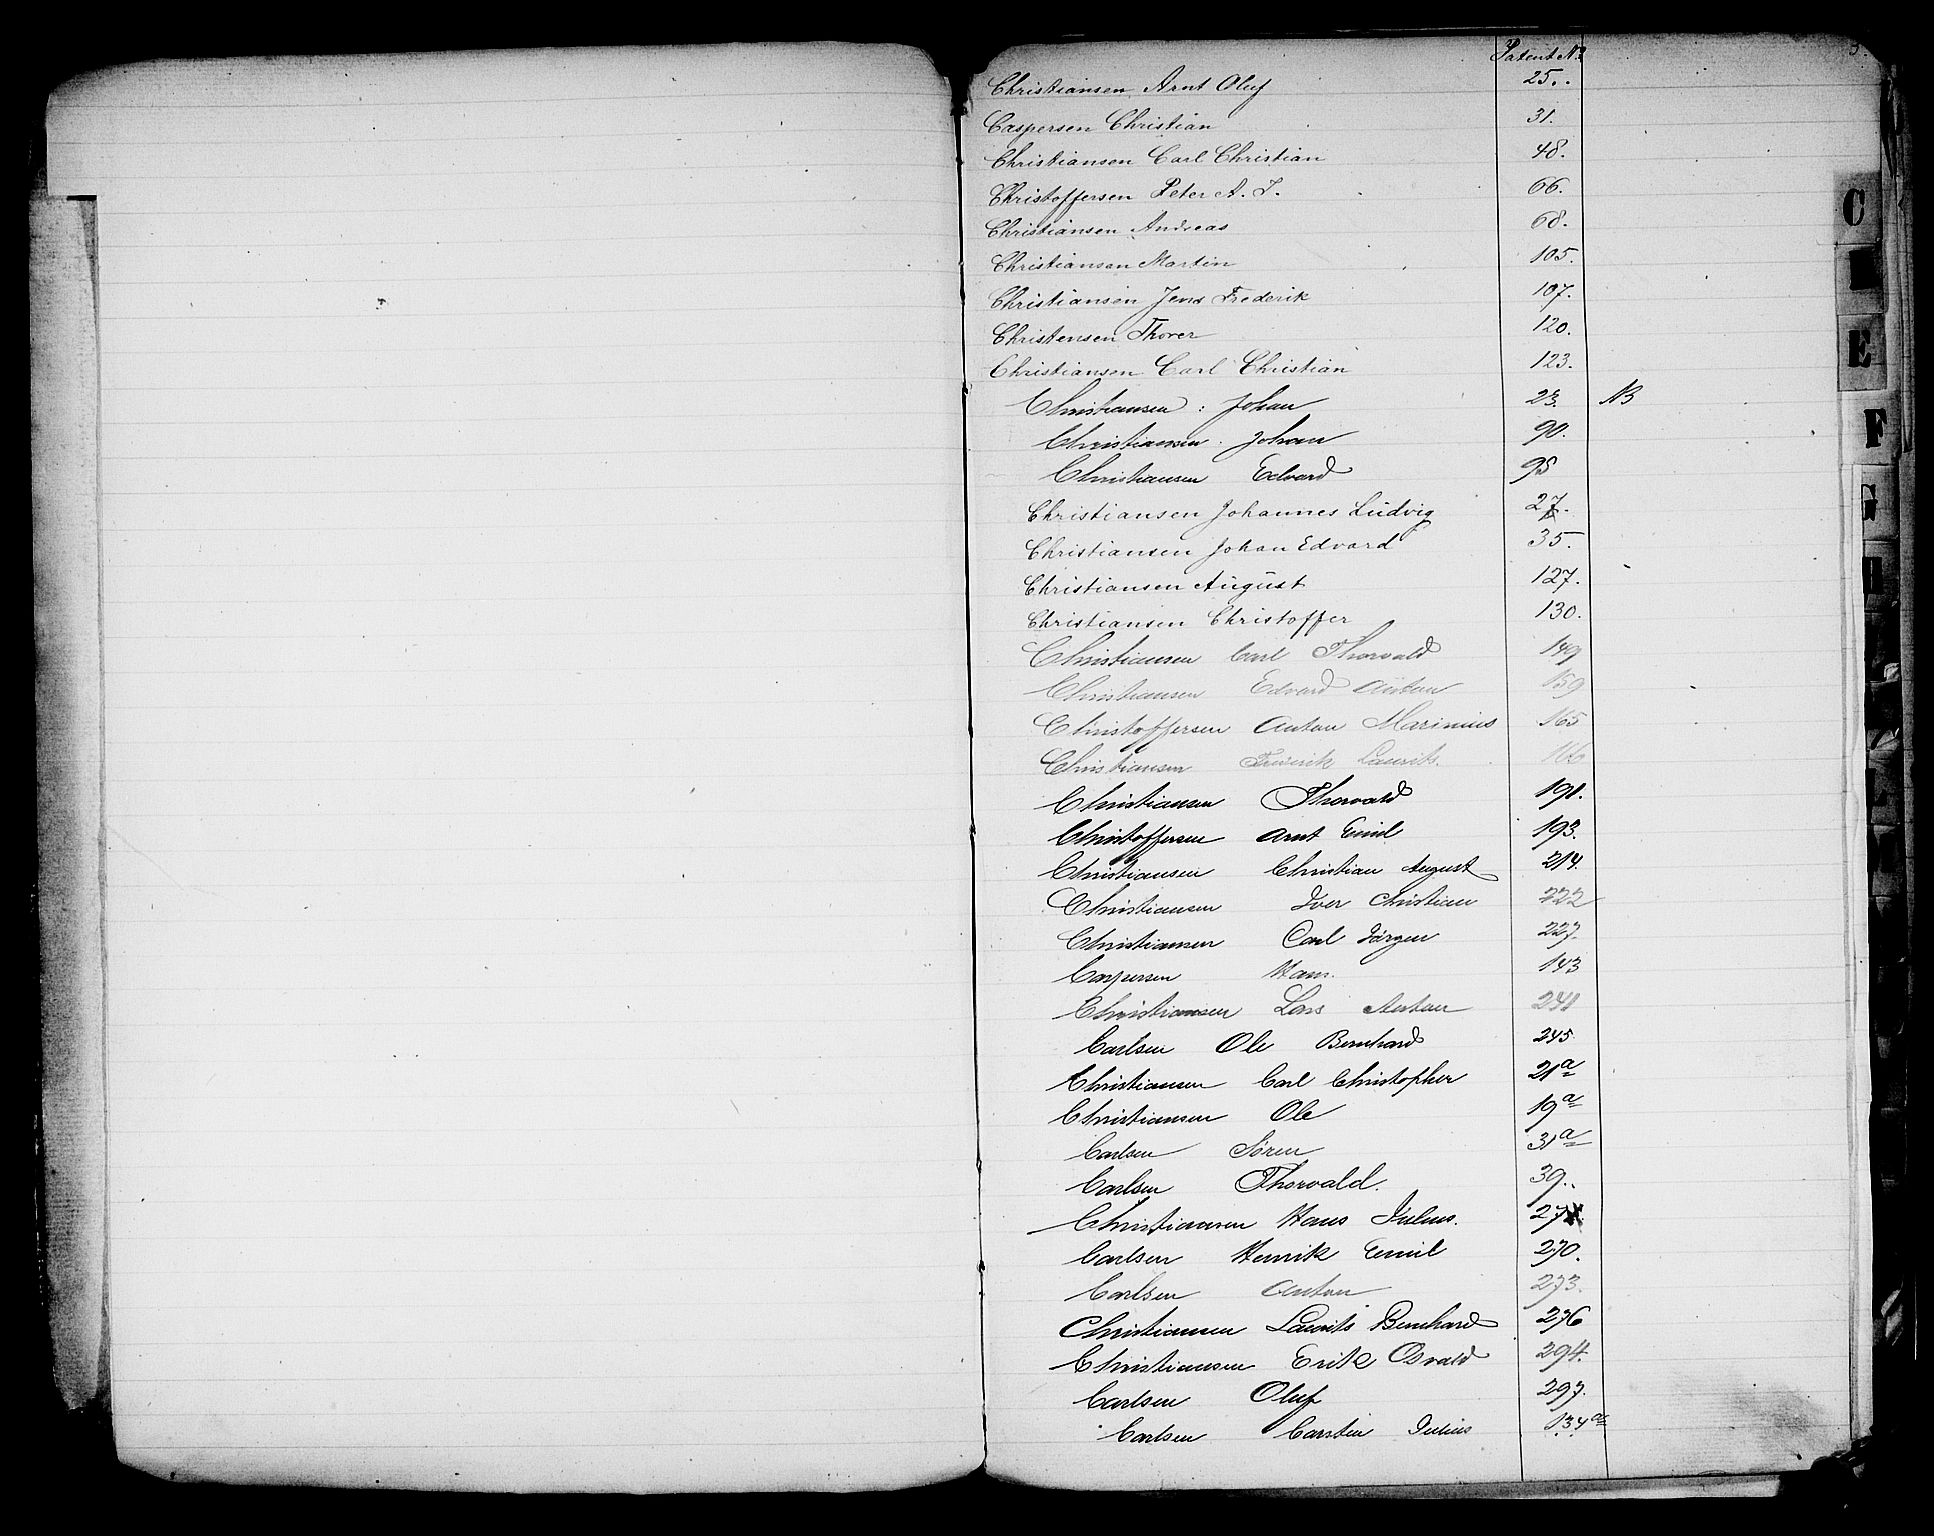 Patent No 3.
Christiansen Arnt Oluf 25.
Caspersen Christian 31.
Christiansen Carl Christian 48.
Christoffersen Peter A. J. 66.
Christiansen Andreas 68.
Christiansen Martin 105.
Christiansen Jens Frederik 107.
Christensen Thorer 120.
Christiansen Carl Christian 123.
Christiansen Johan 23. NB
Christiansen Johan 90.
Christiansen Edvard 98
Christiansen Johannes Ludvig 27.
Christiansen Johan Edvard 35.
Christiansen August 127.
Christiansen Christoffer 130.
Christiansen Carl Thorvald 149
Christiansen Edvard Anton 159
Christoffersen Anton Marinius 165
Christiansen Frederik Laurits. 166
Christiansen Thorvald 191.
Christoffersen Arnt Emil 193.
Christiansen Christian August 214.
Christiansen Iver Christian 222
Christiansen Carl Jörgen 227.
Caspersen Hans. 143
Christiansen Lars Anton 241
Carlsen Ole Bernhard 245.
Christiansen Carl Christopher 21a
Christiansen Ole 19a
Carlsen Sören 31a
Carlsen Thorvald. 39.
Christiansen Hans Julius. 27
Carlsen Henrik Emil 270.
Carlsen Anton 273.
Christiansen Laurits Bernhard 276
Christiansen Erik Osvald 294.
Carlsen Oluf 297.
Carlsen Carstin Julius 134a
C
E
F
G